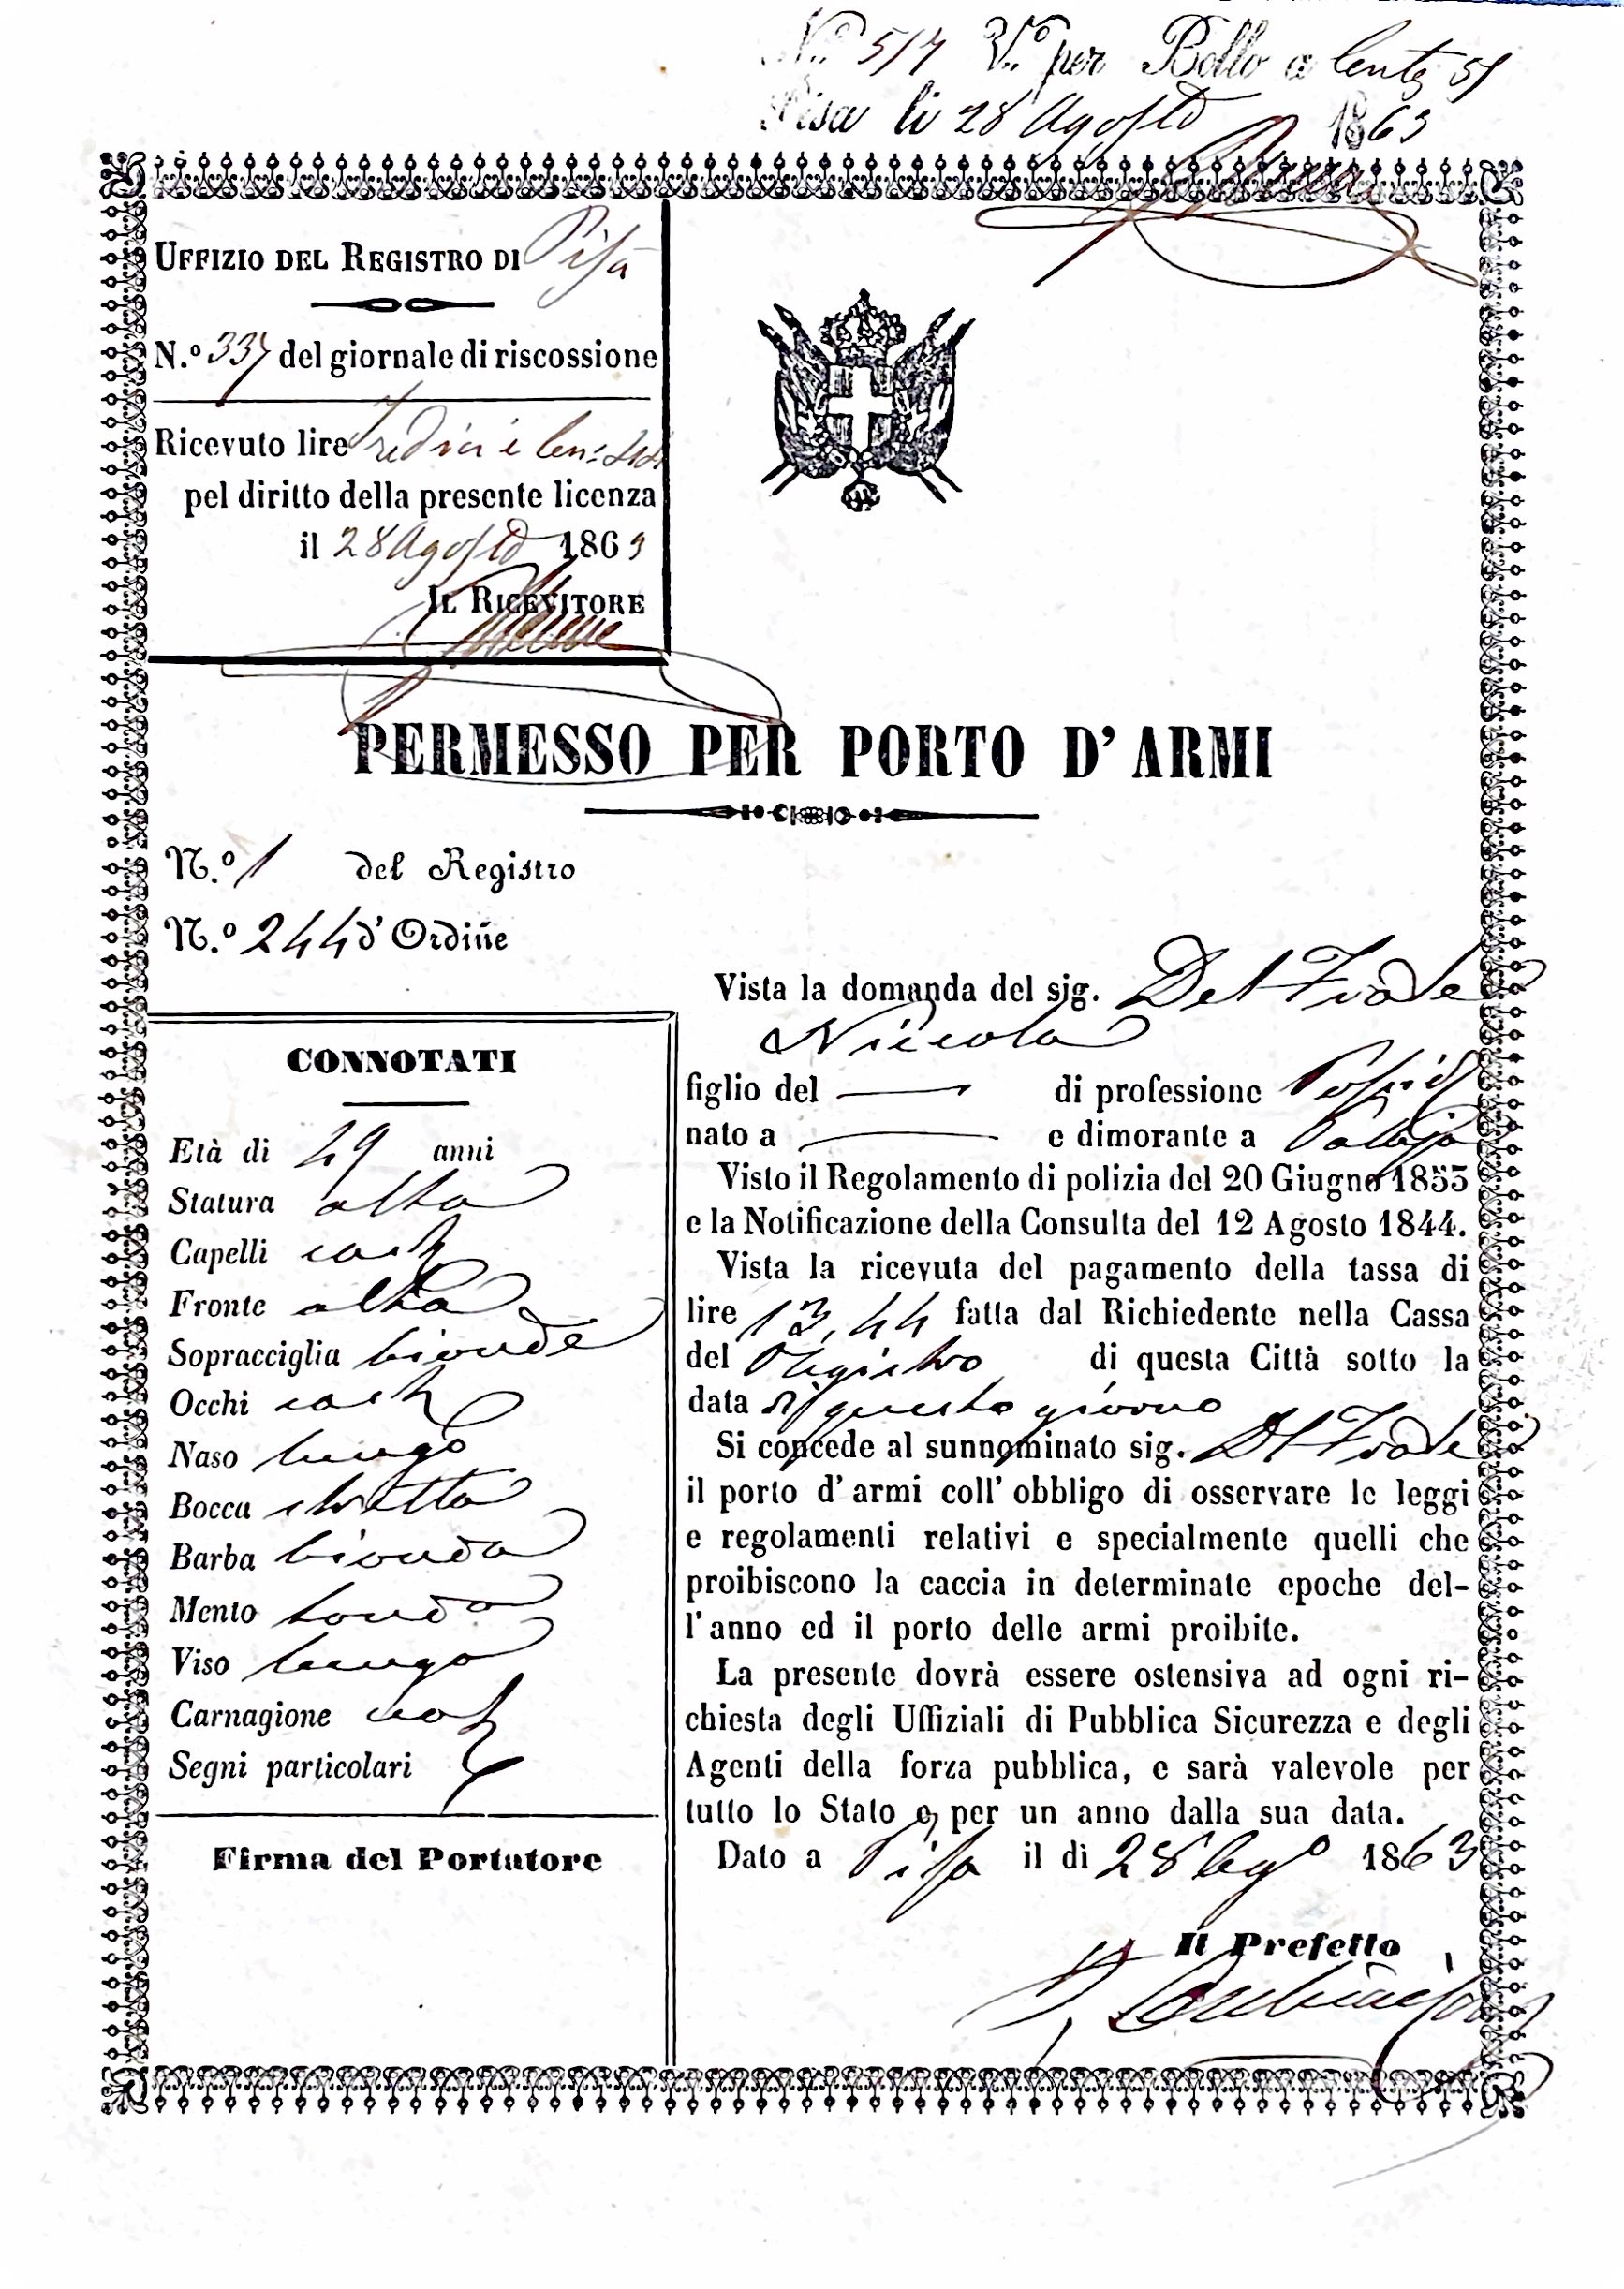 N.º 517 V.º per Bollo a Cent. 55
Pisa li 28 Agosto 1863
UFFIZIO DEL REGISTRO DI Pisa
N.º 337 del giornale di riscossione
Ricevuto lire Tredici e Cen.
pel diritto della presente licenza
il 28 Agosto 1863
IL RICEVITORE
PERMESSO PER PORTO D'ARMI
N.º 1 del Registro
N.º 244 d'Ordine
CONNOTATI
Età di 29 anni
Statura alta
Capelli cast
Fronte alta
Sopracciglia bionde
Occhi cast
Naso lungo
Bocca stretta
Barba bionda
Mento tondo
Viso lungo
Carnagione
Segni particolari
Firma del Portatore
Vista la domanda del sig. Del Frate
Niccola
figlio del — di professione Possid
nato a — e dimorante a Palaja
Visto il Regolamento di polizia del 20 Giugno 1853
e la Notificazione della Consulta del 12 Agosto 1844.
Vista la ricevuta del pagamento della tassa di
lire 13,44 fatta dal Richiedente nella Cassa
del Registro di questa Città sotto la
data di questo giorno
Si concede al sunnominato sig. Del Frate
il porto d'armi coll'obbligo di osservare le leggi
e regolamenti relativi e specialmente quelli che
proibiscono la caccia in determinate epoche del-
l'anno ed il porto delle armi proibite.
La presente dovrà essere ostensiva ad ogni ri-
chiesta degli Uffiziali di Pubblica Sicurezza e degli
Agenti della forza pubblica, e sarà valevole per
tutto lo Stato e per un anno dalla sua data.
Dato a Pisa il dì 28 Agº 1863
Il Prefetto